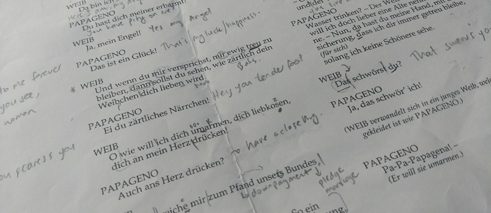 Du bin ich
PAPAGENO
Du hast dich schöner erbarmt
WEIB
Ja, mein Engel!
Yes my Angel
PAPAGENO
Das ist ein Glück!
That's my luck/happiness.
WEIB
Und wenn du mir versprichst, mir ewig treu zu
bleiben, dann sollst du sehen, wie zärtlich dein
Weibchen dich lieben wird.
PAPAGENO
Ei du zärtliches Närrchen!
Hey you tender fool
WEIB
O wie will ich dich umarmen, dich liebkosen,
dich an mein Herz drücken!
PAPAGENO
Auch ans Herz drücken?
to me forever
you see,
woman
Reiche mir zum Pfand unsers Bundes
pledge
marriage
PAPAGENO
Wasser trinken?
will ich doch lieber eine Alte nehmen
Nun, da hast du meine Hand, mit
sicherung, dass ich dir immer getreu bleibe,
(für sich)
solang ich keine Schönere sehe.
WEIB
Das schwörst du?
That swears you
PAPAGENO
Ja, das schwör' ich!
(WEIB verwandelt sich in ein junges Weib, welches
gekleidet ist wie PAPAGENO.)
PAPAGENO
Pa-Pa-Papagena! –
(Er will sie umarmen.)
So ein